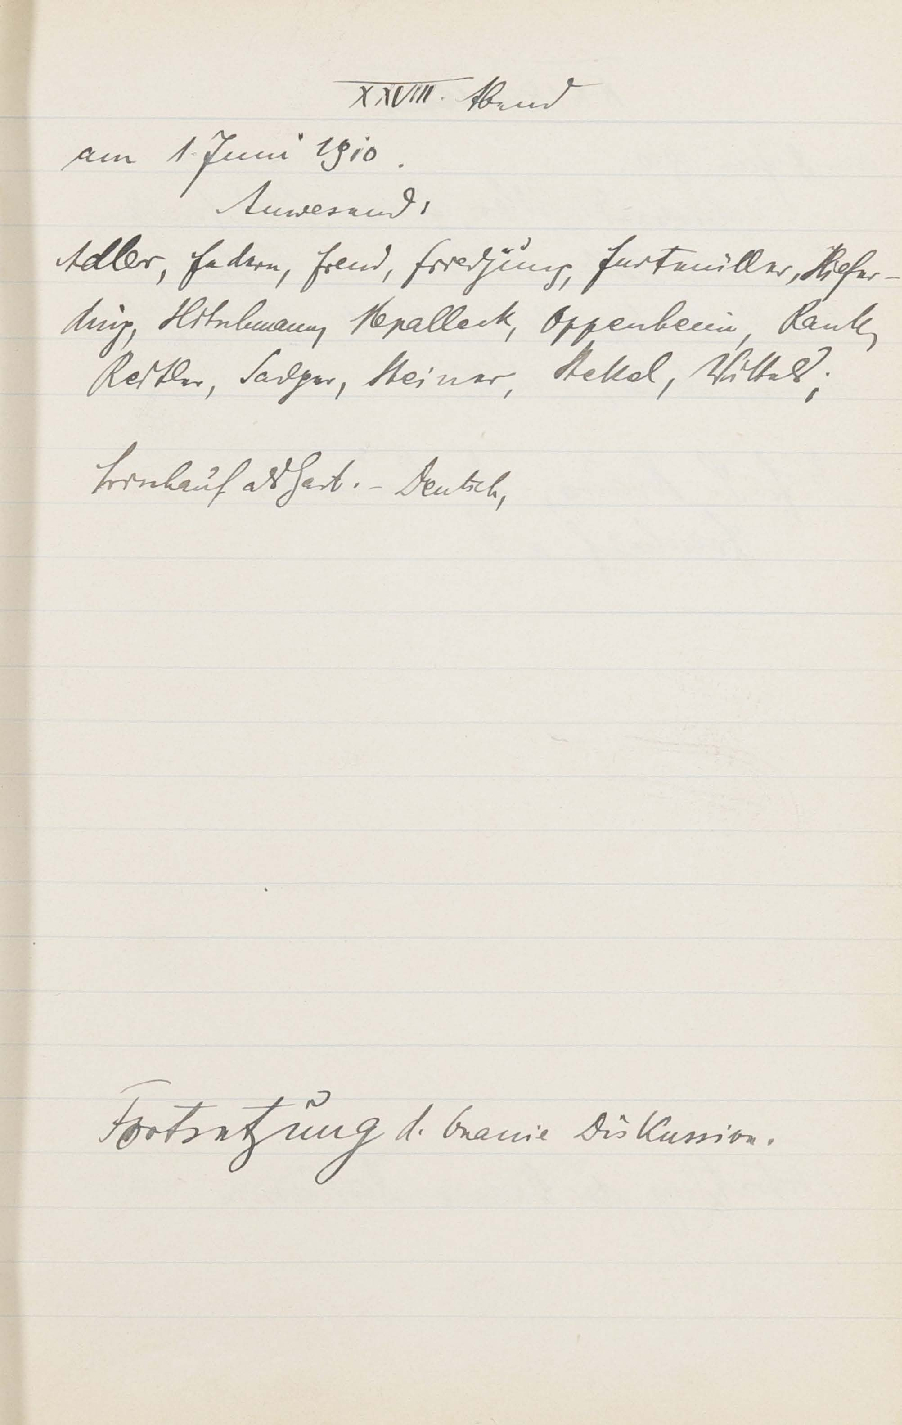 XXVIII. Abend
am 1. Juni 1910.
Anwesend:
Adler, Federn, Freud, Friedjung, Furtmüller, Hilfer-
ding, Hitschmann, Oppenheim, Rank,
Reitler, Sadger, Steiner, Stekel, Wittels;
als Gast. - Deutsch,
Fortsetzung d. Onanie Diskussion.